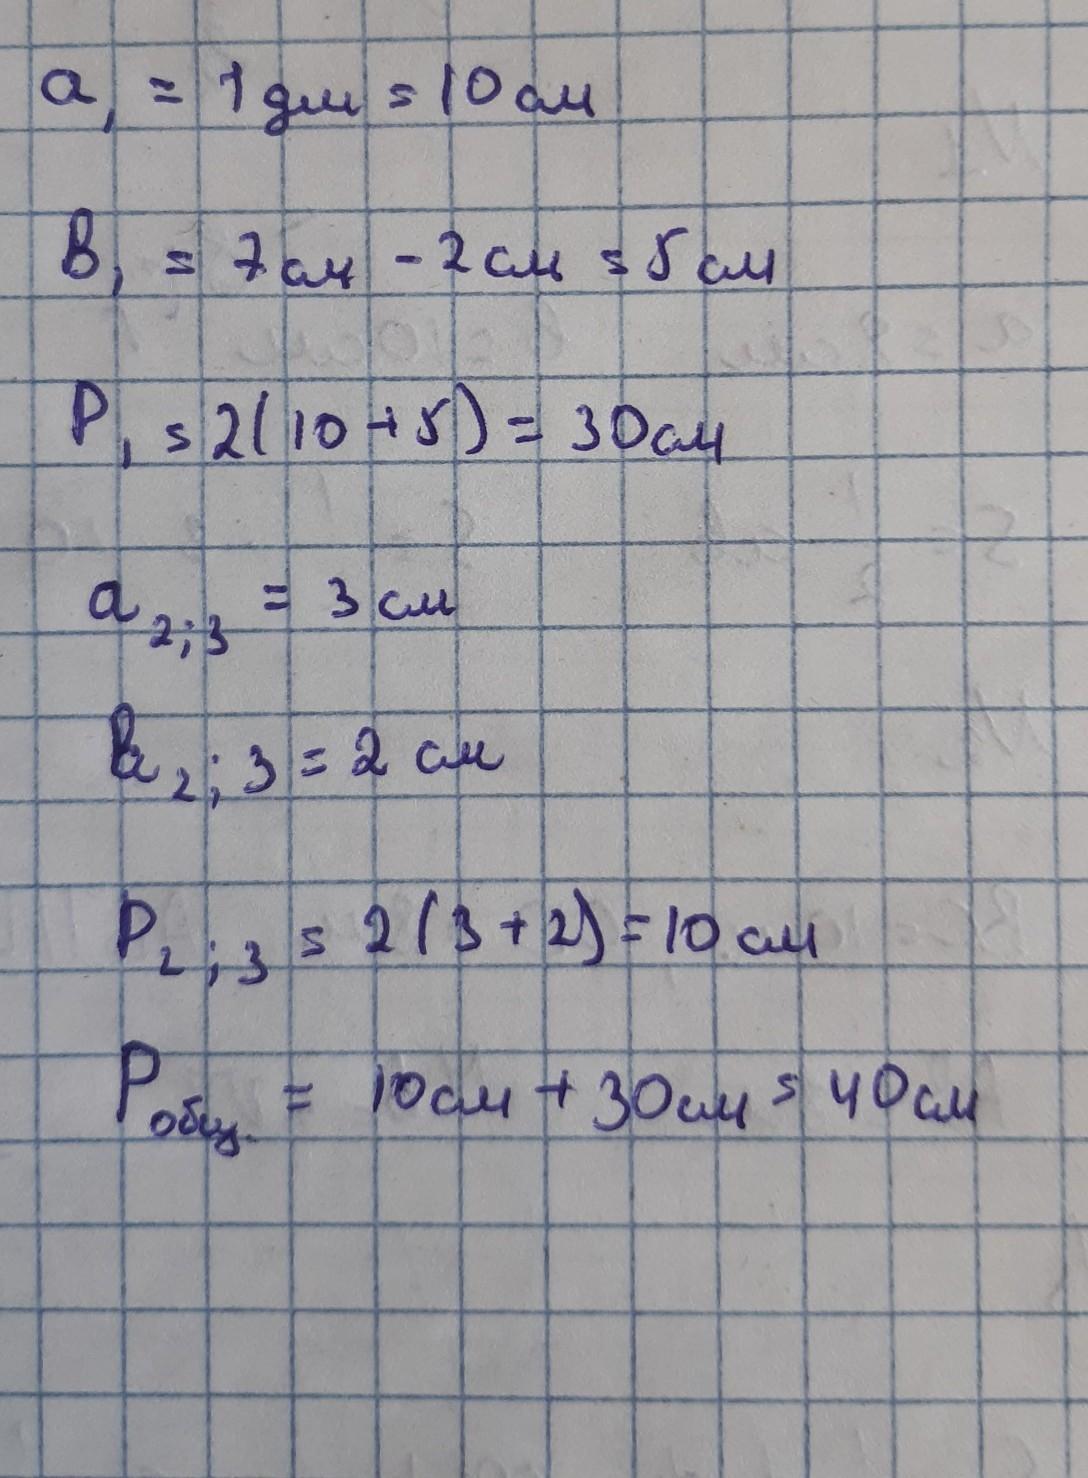 a₁ = 1 дм = 10 см
B₁ = 7 см - 2 см = 5 см
P₁ = 2(10 + 5) = 30 см
a₂;₃ = 3 см
B₂;₃ = 2 см
P₂;₃ = 2(3 + 2) = 10 см
Pобщ. = 10 см + 30 см = 40 см